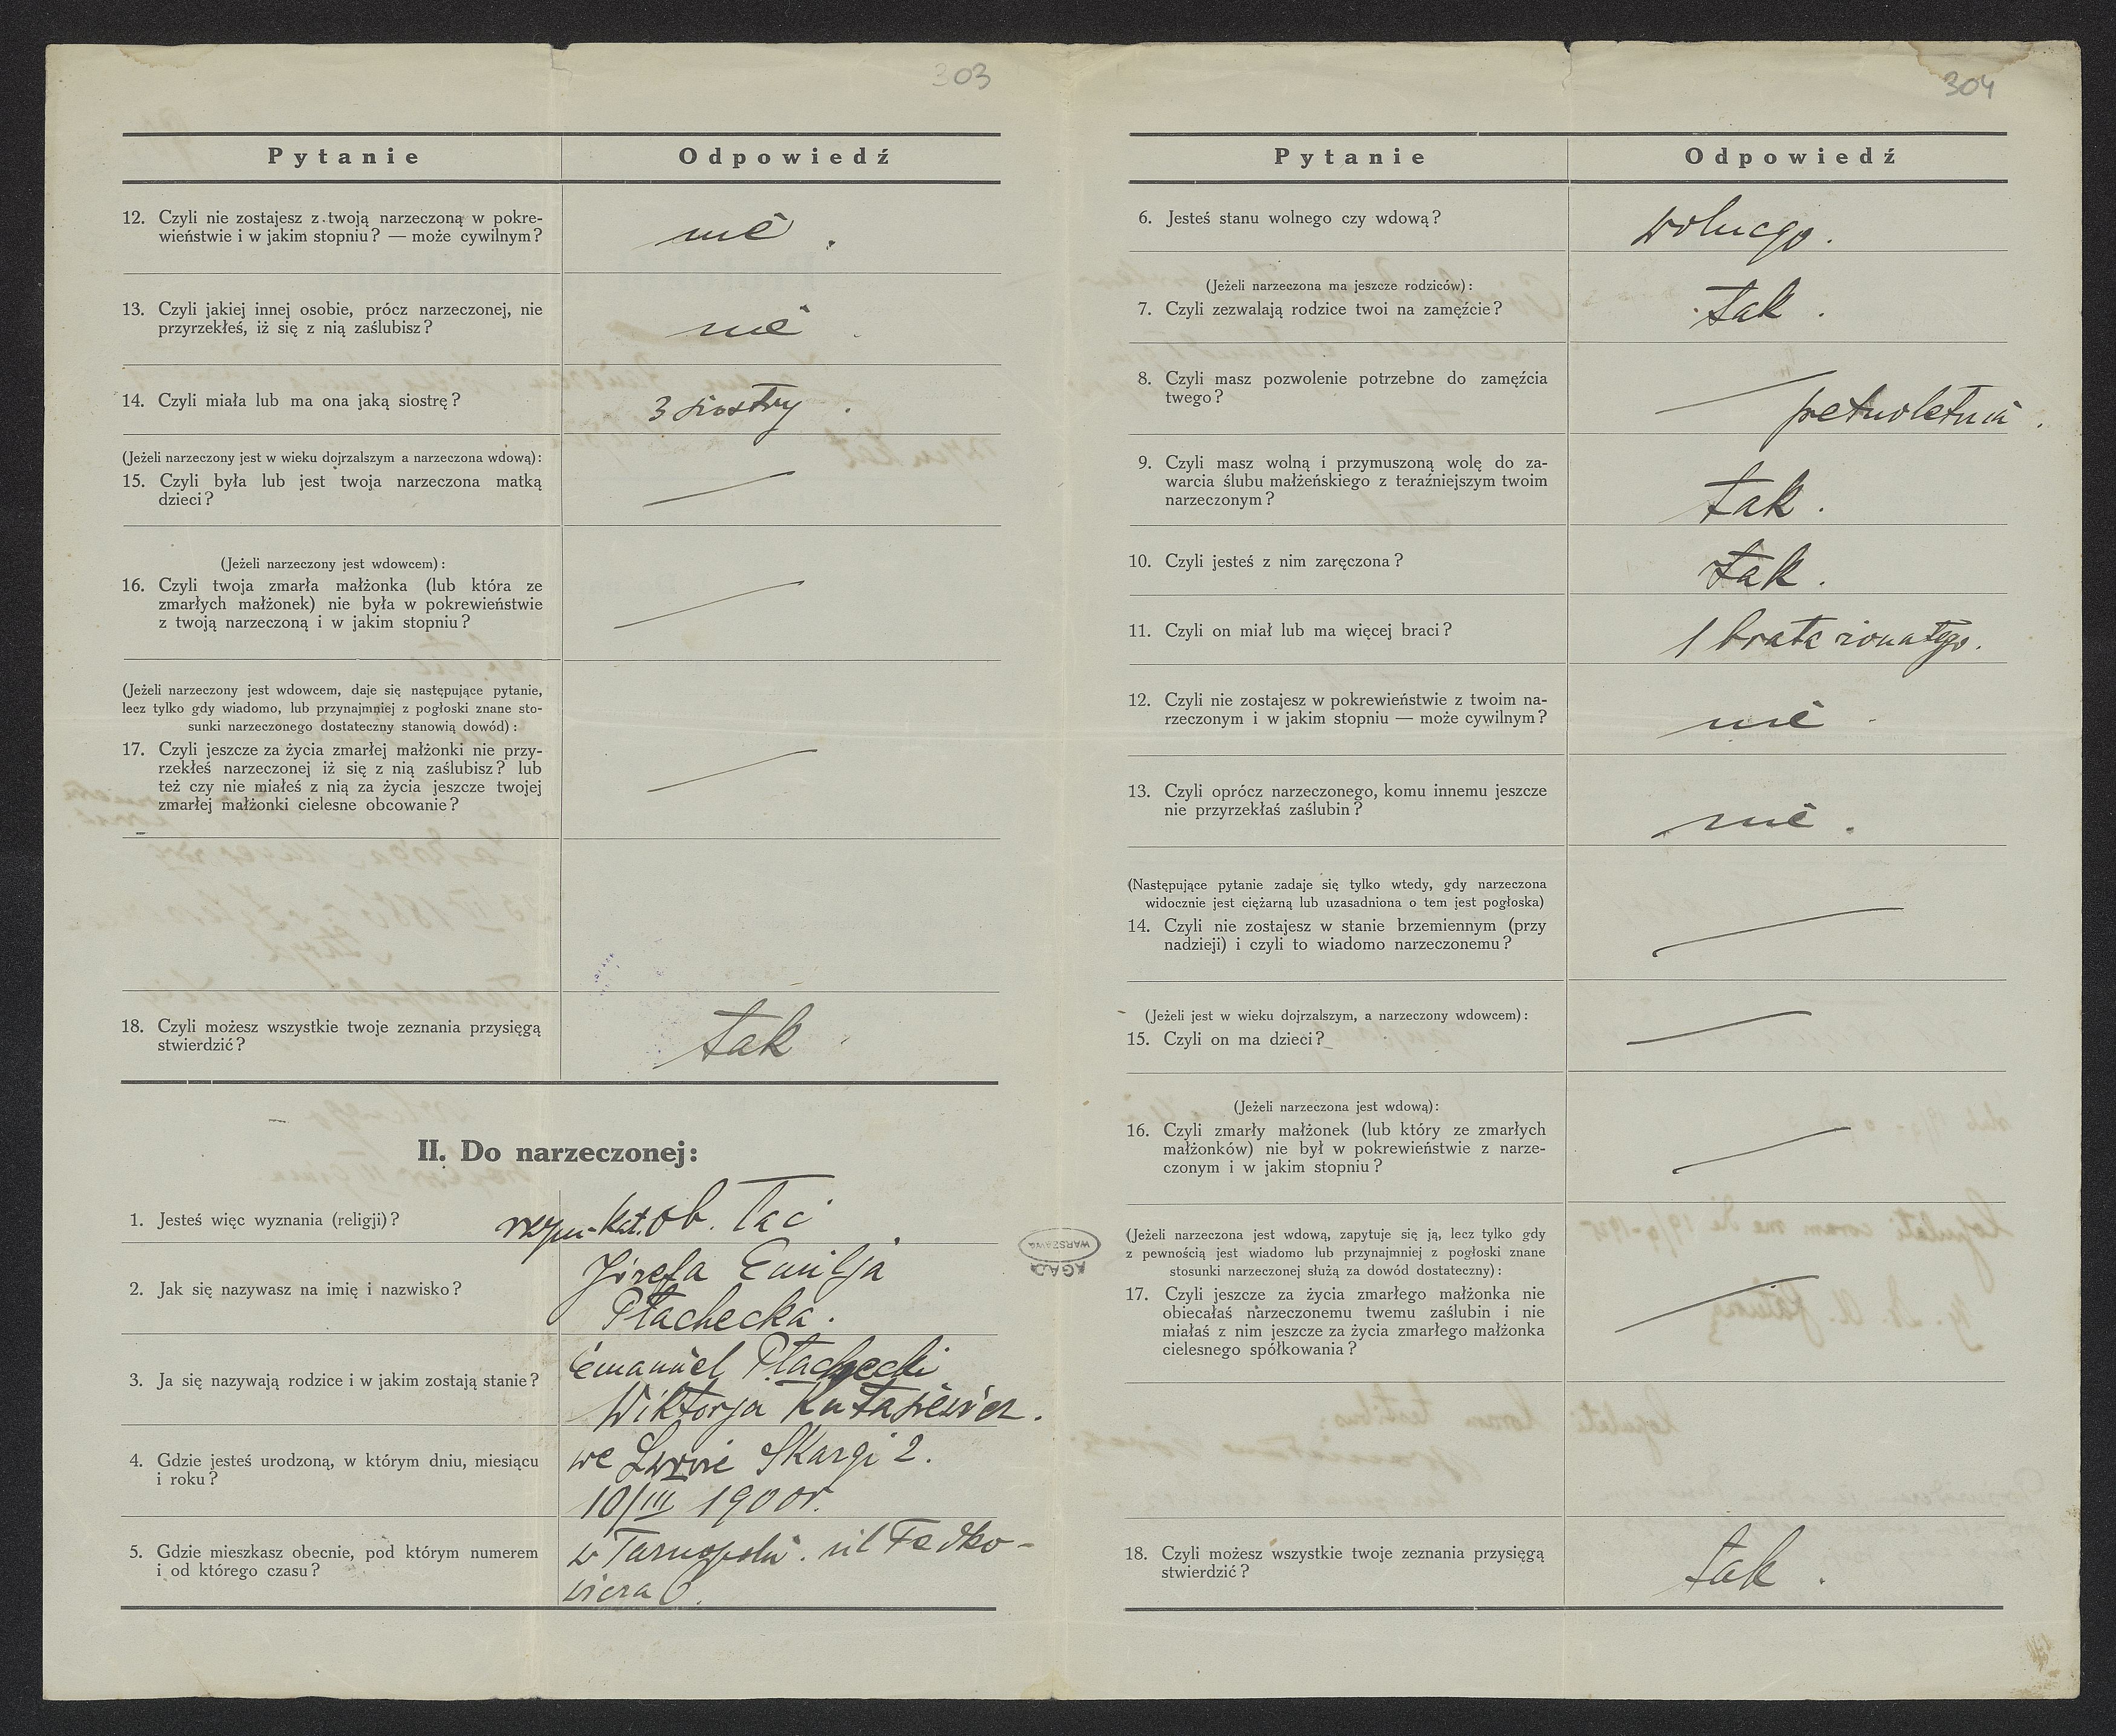 303
Pytanie Odpowiedź
12. Czyli nie zostajesz z twoją narzeczoną w pokre-
wieństwie i w jakim stopniu? — może cywilnym?
nie.
13. Czyli jakiej innej osobie, prócz narzeczonej, nie
przyrzekłeś, iż się z nią zaślubisz?
nie
14. Czyli miała lub ma ona jaką siostrę?
3 siostry.
(Jeżeli narzeczony jest w wieku dojrzalszym a narzeczona wdową):
15. Czyli była lub jest twoja narzeczona matką
dzieci?
(Jeżeli narzeczony jest wdowcem):
16. Czyli twoja zmarła małżonka (lub która ze
zmarłych małżonek) nie była w pokrewieństwie
z twoją narzeczoną i w jakim stopniu?
(Jeżeli narzeczony jest wdowcem, daje się następujące pytanie,
lecz tylko gdy wiadomo, lub przynajmniej z pogłoski znane sto-
sunki narzeczonego dostateczny stanowią dowód):
17. Czyli jeszcze za życia zmarłej małżonki nie przy-
rzekłeś narzeczonej iż się z nią zaślubisz? lub
też czy nie miałeś z nią za życia jeszcze twojej
zmarłej małżonki cielesne obcowanie?
18. Czyli możesz wszystkie twoje zeznania przysięgą
stwierdzić?
tak
II. Do narzeczonej:
1. Jesteś więc wyznania (religji)?
rzym-kat. ob. łac
2. Jak się nazywasz na imię i nazwisko?
Józefa Emilja
Płachecka.
3. Ja się nazywają rodzice i w jakim zostają stanie?
Emanuel Płachecki
Wiktorja
4. Gdzie jesteś urodzoną, w którym dniu, miesiącu
i roku?
we Lwowie Skargi 2.
10/III 1900 r.
5. Gdzie mieszkasz obecnie, pod którym numerem
i od którego czasu?
w Tarnopolu. ul Fedko-
wicza 6.
AGAD
WARSZAWA
304
Pytanie Odpowiedź
6. Jesteś stanu wolnego czy wdową?
wolnego.
(Jeżeli narzeczona ma jeszcze rodziców):
7. Czyli zezwalają rodzice twoi na zamęźcie?
tak.
8. Czyli masz pozwolenie potrzebne do zamęźcia
twego?
pełnoletnia.
9. Czyli masz wolną i przymuszoną wolę do za-
warcia ślubu małżeńskiego z teraźniejszym twoim
narzeczonym?
tak.
10. Czyli jesteś z nim zaręczona?
tak.
11. Czyli on miał lub ma więcej braci?
1 brata żonatego.
12. Czyli nie zostajesz w pokrewieństwie z twoim na-
rzeczonym i w jakim stopniu — może cywilnym?
nie
13. Czyli oprócz narzeczonego, komu innemu jeszcze
nie przyrzekłaś zaślubin?
nie.
(Następujące pytanie zadaje się tylko wtedy, gdy narzeczona
widocznie jest ciężarną lub uzasadniona o tem jest pogłoska)
14. Czyli nie zostajesz w stanie brzemiennym (przy
nadzieji) i czyli to wiadomo narzeczonemu?
(Jeżeli jest w wieku dojrzalszym, a narzeczony wdowcem):
15. Czyli on ma dzieci?
(Jeżeli narzeczona jest wdową):
16. Czyli zmarły małżonek (lub który ze zmarłych
małżonków) nie był w pokrewieństwie z narze-
czonym i w jakim stopniu?
(Jeżeli narzeczona jest wdową, zapytuje się ją, lecz tylko gdy
z pewnością jest wiadomo lub przynajmniej z pogłoski znane
stosunki narzeczonej służą za dowód dostateczny):
17. Czyli jeszcze za życia zmarłego małżonka nie
obiecałaś narzeczonemu twemu zaślubin i nie
miałaś z nim jeszcze za życia zmarłego małżonka
cielesnego spółkowania?
18. Czyli możesz wszystkie twoje zeznania przysięgą
stwierdzić?
tak.